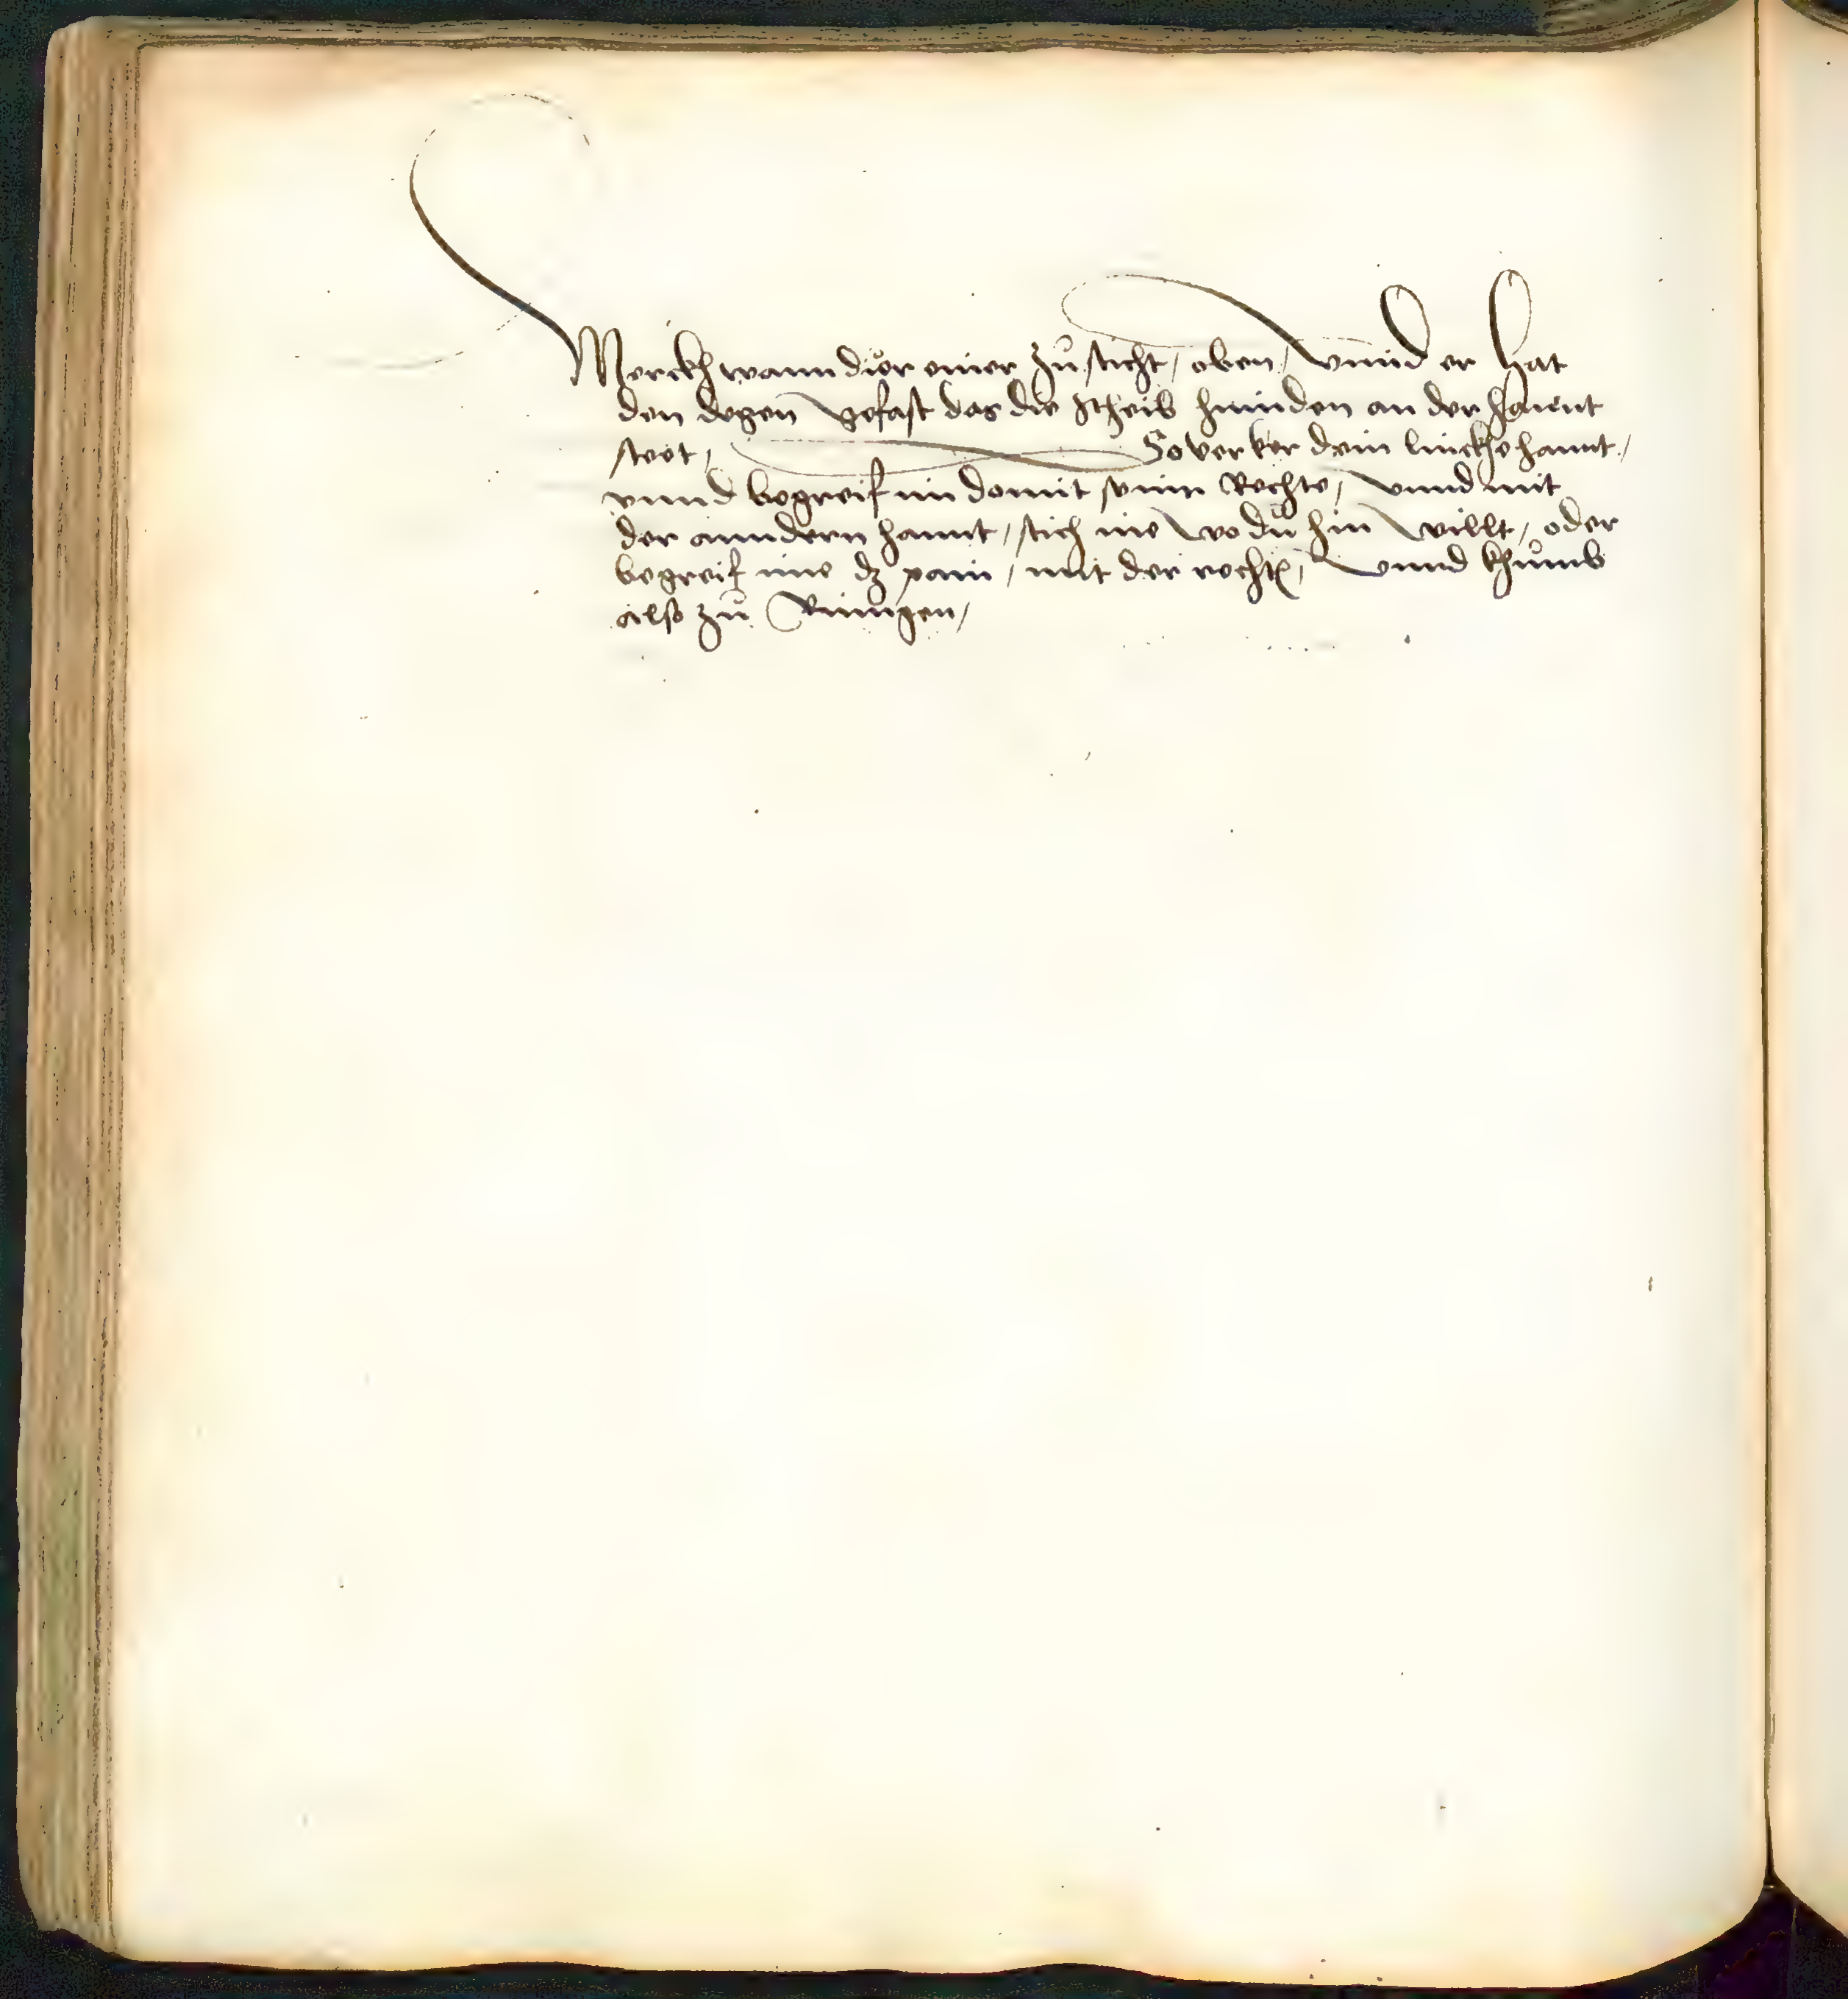 Merckh wann diͤr einer zuͦ sticht / oben / vnnd er hat
den degen gefast das die scheib hinnden an der hannt
steet / So verker dein linckhe hannt /
vnnd begreif im damit seinn Rechte / vnnd mit
der anndern hannt / stich ine wo duͦ hin willt / oder
begreif ime dz pain / mit der rechtn̄ / vnnd khuͦmb
also zuͦ Rinngen /